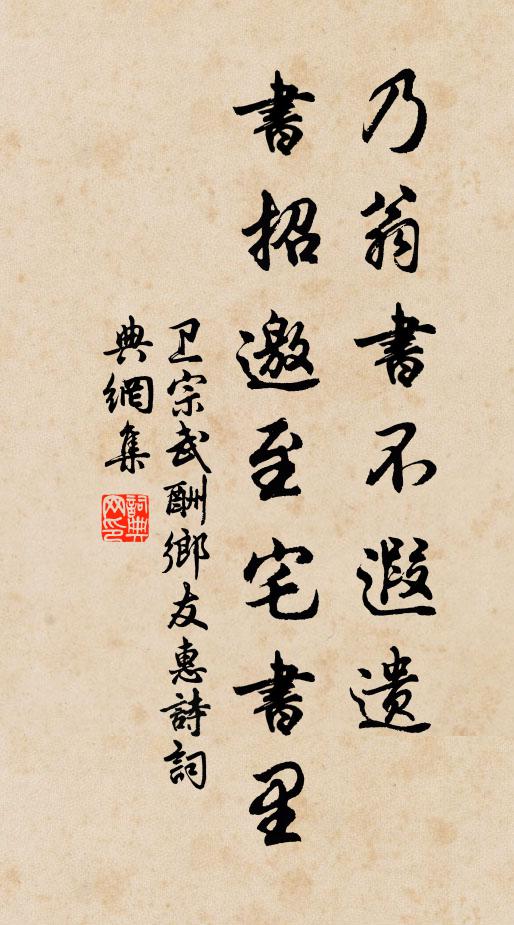 乃翁書不遐遗
書招邀至宅書里
卫宗武酬鄉友惠詩詞
典網集
詞典網印